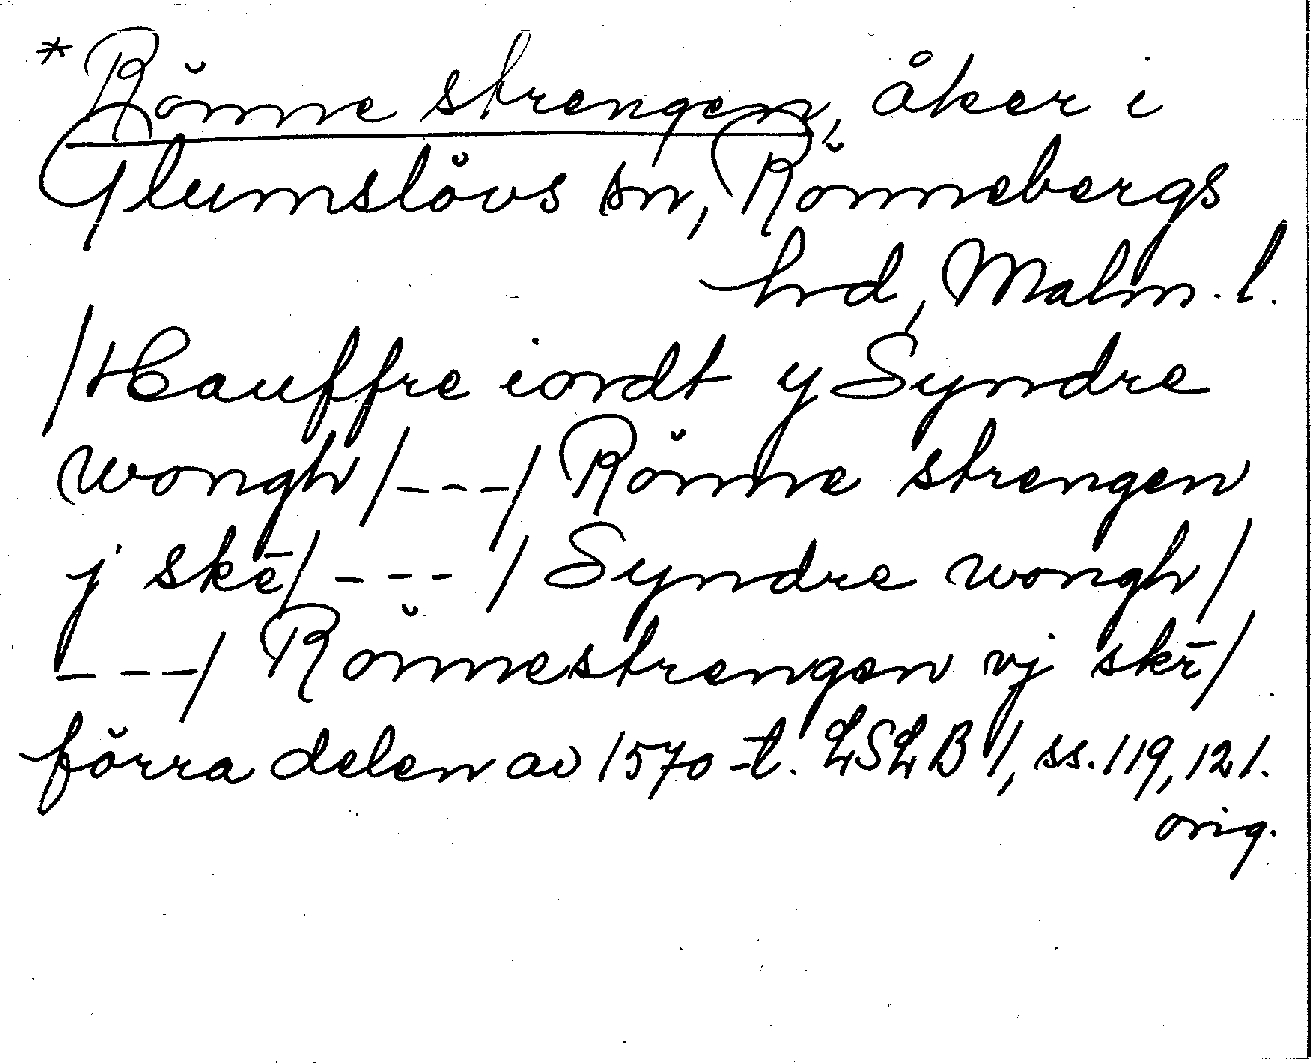 *Rönne strengen, åker i
Glumslövs sn, Rönnebergs
hrd, Malm. l.
/Hauffre iordt y Syndre
wongh/---/ Rönne strengen
j skē/---/ Syndre wongh/
---/ Rönnestrengen vj skē/
förra delen av 1570-t. LSLB 1, ss. 119, 121.
orig.